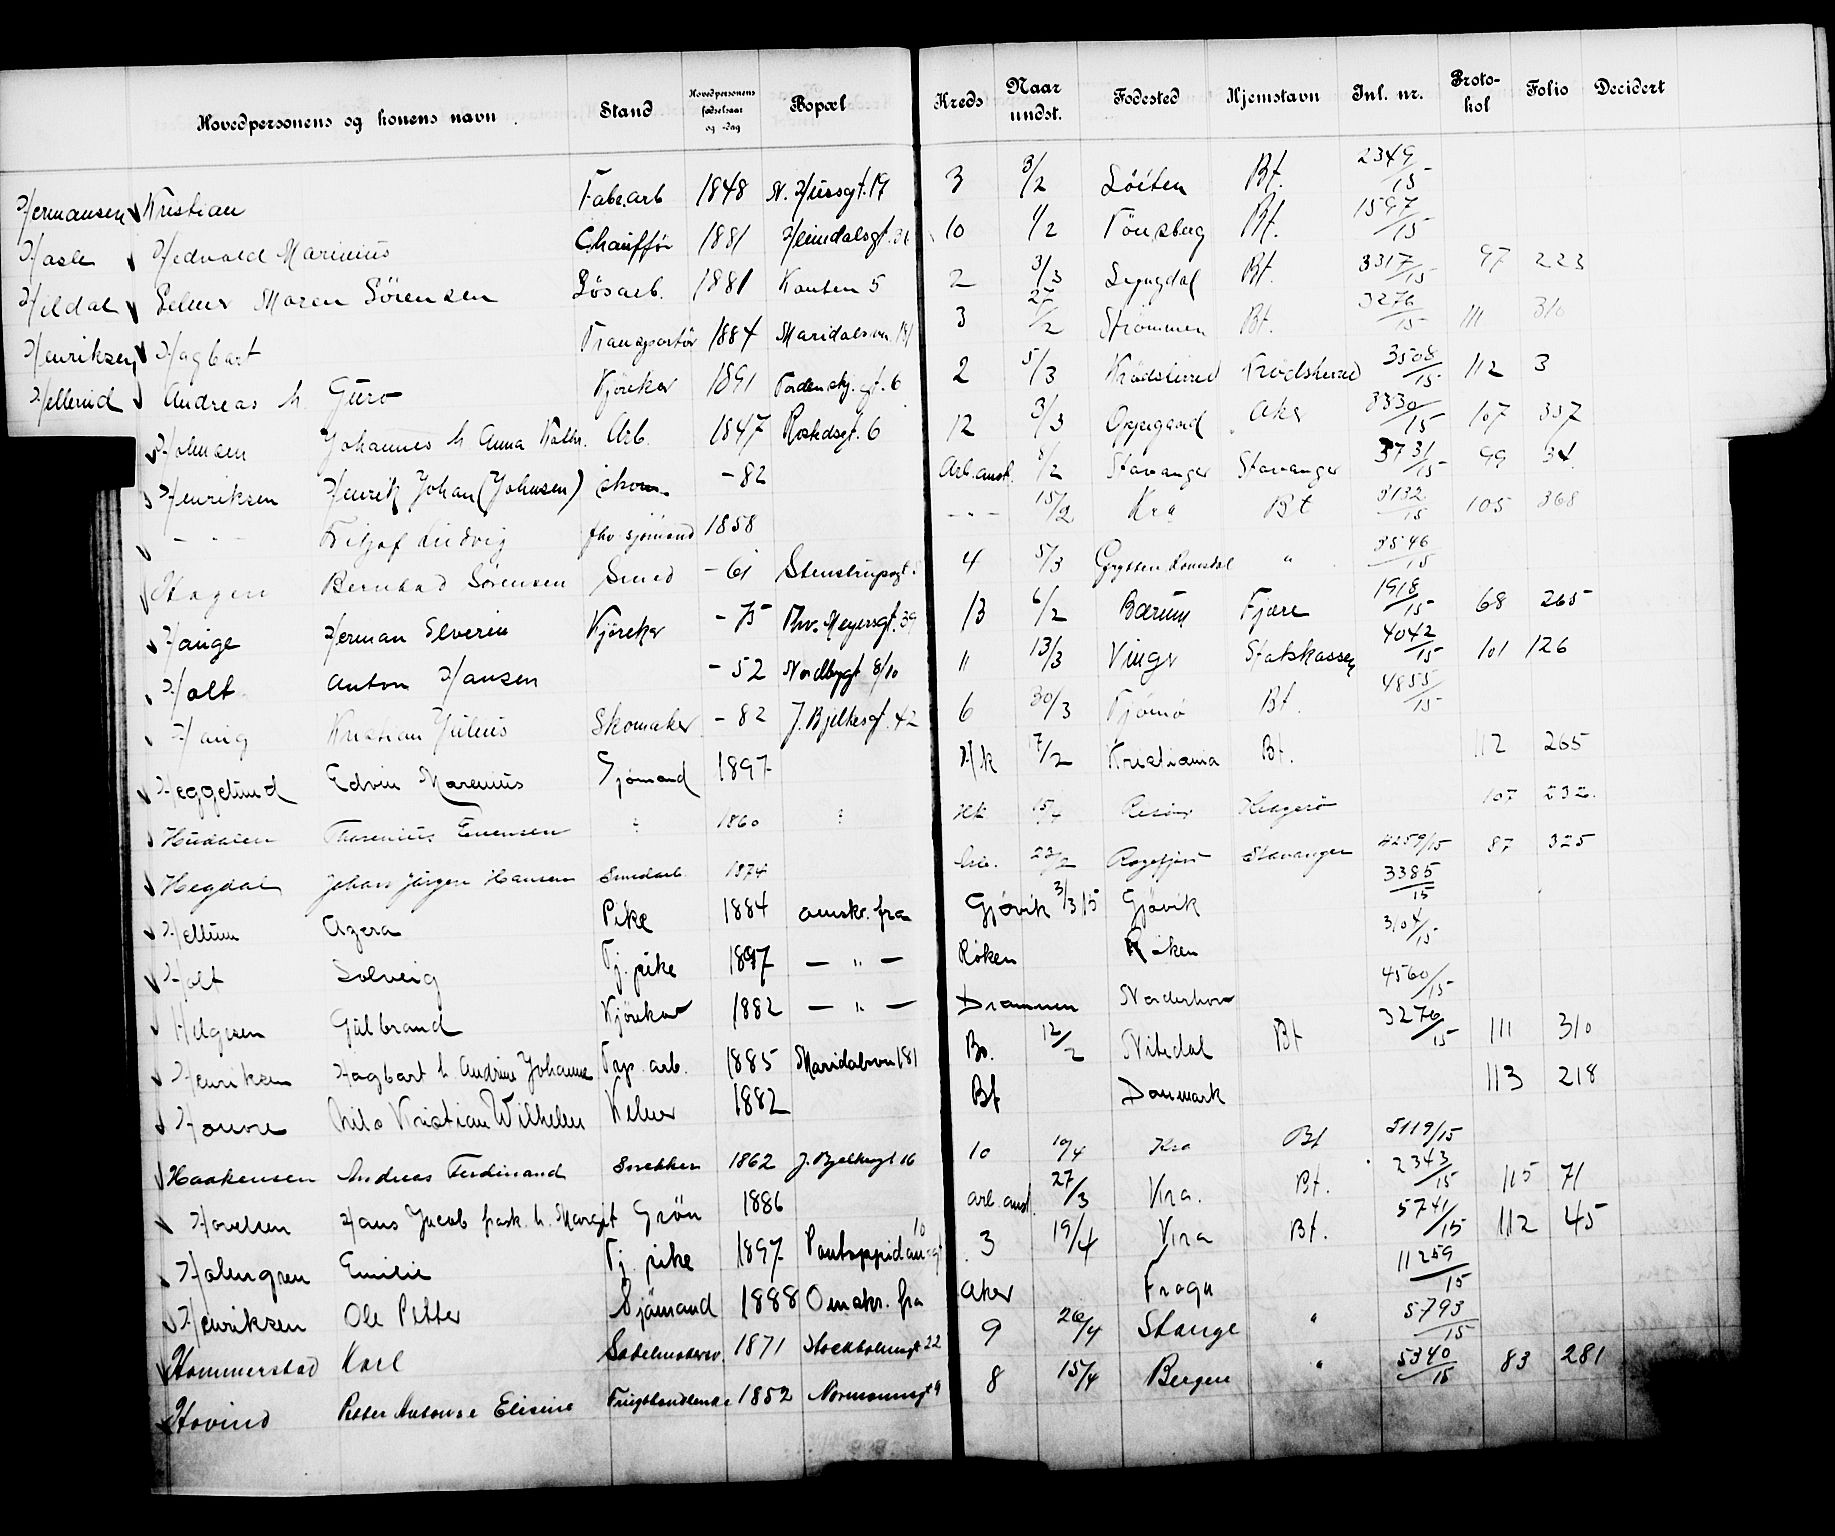 Hovedpersonens og konens navn Stand Hovedpersonens fødselsaar og -dag Bopæl Kreds Naar undst. Fødested Hjemstavn Inl. nr. Protokol Folio Decidert
Hermansen Kristian Fabr.arb 1848 N. Hussgt. 19 3 3/2 Löiten Bt. 2349/15
Hasle Hedvald Marinius Chaufför 1881 Heimdalsgt. 10 1/2 Tönsberg Bt. 1597/15
Hildal Peder Maren Sörensen Lösarb. 1881 Kanten 5 2 3/3 Lyngdal Bt. 3317/15 97 223
Henriksen Hagbart Transportör 1884 Maridalsvn. 181 3 27/2 Strömmen Bt. 3276/15 111 310
Hellerud Andreas h. Guro Kjörekar 1891 Tordenskj. gt. 6 2 5/3 Krödsherred Krödsherred 3508/15 112 3
Holmsen Johannes h Anna Kathr. Arb. 1847 Rostedsgt. 6 12 3/3 Oppegaard Aker 3330/15 107 337
Henriksen Henrik Johan (Johnsen) skom. - 82 Arb.anst. /2 Stavanger Stavanger 3731/15 99 34
- " - Fritjof Ludvig fhv. sjömand 1858 - " - 15/2 Kra Bt 3132/15 105 368
Hagen Bernhard Sörensen Smed - 61 Stenstrupsgt. 4 5/3 Grytten Romsdal " 3546/15
Hauge Herman Severin Kjörekar - 75 Thv. Meyersgt. 39 13 6/2 Bærum Fjære 1918/15 68 265
Holt Anton Hansen - 52 Nordbygt 8/10 " 13/3 Vinger Statskassen 4042/15 101 126
Haug Kristian Julius Skomaker - 82 J. Bjelkesgt. 42 6 30/3 Tjömö Bt. 4855/15
Heggelund Edvin Marenius Sjömand 1897 Hk 17/2 Kristiania Bt. 112 265
Hudalen Thorenius Evensen 1860 Hk 15/ Risör Kragerö 107 232.
Hegdal Johan Jörgen Hansen Smedarb. 1874 23/2 Stavanger 4259/15 87 325
Hellum Agera Pike 1884 omskr. fra Gjövik 3/3 15 Gjövik 3385/15
Holt Solveig Tj. pike 1897 — " — Röken Röken 3104/15
Helgesen Gulbrand Kjörekar 1882 — " — Drammen Norderhov 4560/15
Henriksen Hagbart h. Andrine Johanne Pap. arb. 1885 Maridalsvn 181 Bo. 12/2 Nitedal Bt 3276/15 111 310
Nils Kristian Wilhelm Kelner 1882 Bt Danmark 113 218
Haakensen Andreas Ferdinand Snekker 1862 J. Bjelkesgt 16 10 10/4 Kra Bt 5119/15
Hovelsen Hans Jacob frask. h. Margit Grön 1886 arb. anst. 27/3 Kra. Bt. 2343/15 115 71
Holmgren Emilie Tj. pike 1897 Pontoppidansgt 10 3 19/4 Kra Bt. 5741/15 112 45
Henriksen Ole Petter Sjömand 1888 Omskr. fra Aker Frogn 11259/15
Hommerstad Karl Sadelmakersv. 1871 Stockholmsgt 22 9 26/4 Stange " 5793/15
Hovind Petter Antonse Elisine Frugthandlerske 1852 Normannsgt 9 8 15/4 Bergen " 5340/15 83 281